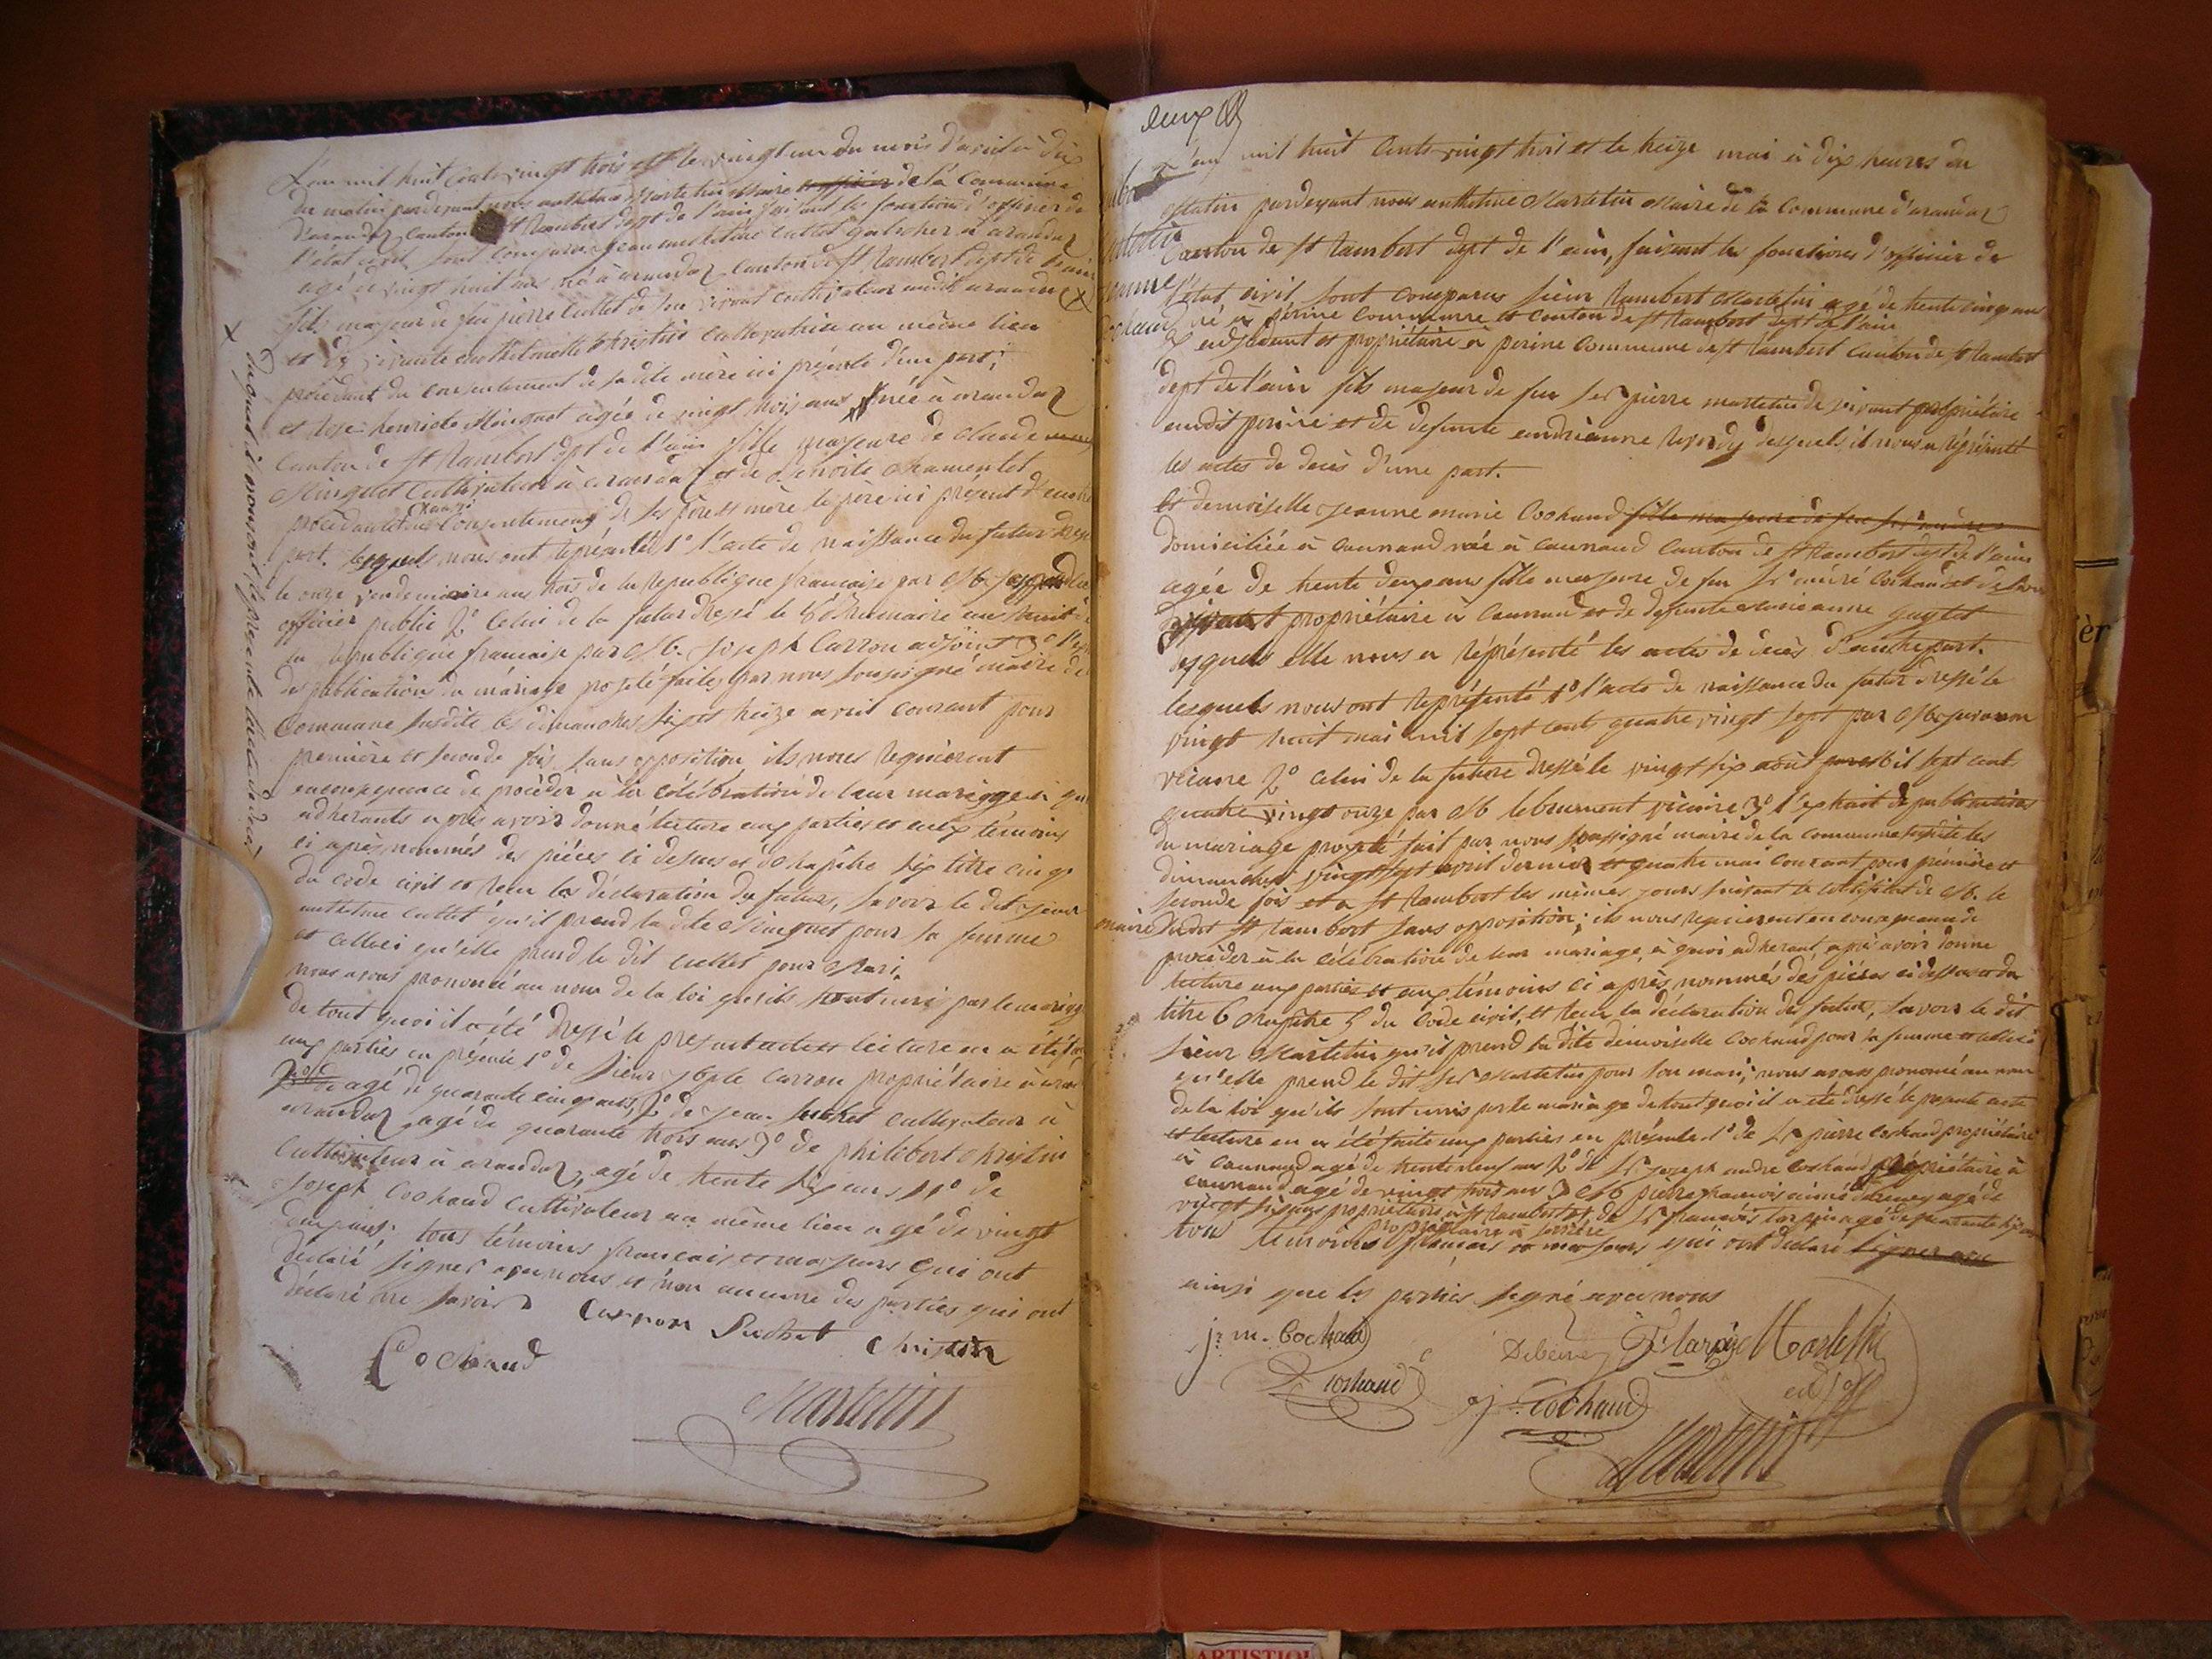 L'an mil huit cents vingt trois et le vingt un du mois d'avril à dix
du matin pardevant nous anthelme Martelin Maire et officier de la Commune
d'arandaz canton St Rambert dept de l'ain faisant les fonctions d'officier de
l'état civil sont comparus jean anthelme Cullet à arandaz
agé de vingt huit ans né à arandaz canton de St Rambert dept de l'ain
fils majeur de feu pierre Cullet de son vivant cultivateur audit arandaz
et de vivante christin cultivatrice au même lieu
procédant du consentement de sadite mère ici présente d'une part;
et Rose henriete Minguet agée de vingt trois ans née à arandaz
Canton de St Rambert dpt de l'ain fille majeure de Claude
Minguet Cultivateur à arandaz et de benoite chamentet
procédante du consentement de ses père et mère le père ici présent d'autre
part. lesquels nous ont représenté 1º l'acte de naissance du futur dressé
le onze vendemiaire ans trois de la republique francaise par
officier public 2º Celui de la futur dressé le brumaire ans huit de
la republique francaise par Mr. Joseph Carron adjoint 3º
des publications du mariage projeté faites par nous soussigné maire de
Commune susdite les dimanches six et treize avril courant pour
première et seconde fois sans opposition ils nous requierent
en consequence de procéder à la célébration de leur mariage à
adherants après avoir donné lecture aux parties et aux témoins
ci après nommés des piéces ci dessus et du chapitre six titre cinq
du code civil et reçu la déclaration des futurs, savoir le dit jean
anthelme Cullet qu'il prend la dite Minguet pour sa femme
et celleci qu'elle prend le dit Cullet pour Mari.
nous avons prononcé au nom de la loi qu'ils sont unis par le mariage
de tout quoi il a été dressé le present acte et lecture en a été
aux parties en présence 1º de sieur Carron propriétaire à
agé de quarante cinq ans, 2º de jean Suchet cultivateur à
arandaz agé de quarante trois ans 3º de philibert christin
Cultivateur à arandaz, agé de trente six ans 4º de
Joseph Cochaud cultivateur au même lieu agé de vingt
cinq ans; tous témoins francais et majeurs qui ont
déclaré signer avec nous et non aucune des parties qui ont
déclaré ne savoir
Carron Suchet Christin
Cochaud
Martelin
X duquel il nous a représenté l'acte de décès
deux
L'an mil huit cents vingt trois et le treize mai à dix heures du
Matin pardevant nous anthelme Martelin Maire de la Commune d'arandaz
Canton de St Rambert dept de l'ain, faisant les fonctions d'officier de
l'état civil sont comparus sieur Rambert Martelin agé de trente cinq ans
né à perine commune et canton de St Rambert dept de l'ain
residant et propriétaire à perine commune de St Rambert canton de St Rambert
dept de l'ain fils majeur de feu Sr pierre martelin de vivant propriétaire
audit perine et de defunte andrianne desquels il nous a représenté
les actes de decès d'une part.
et demoiselle Jeanne marie Cochaud fille majeure de feu
domiciliée à Caunaud née à Caunaud Canton de St Rambert dept de l'ain
agée de trente deux ans fille majeure de feu Sr Cochaud
propriétaire à Caunaud et de defunte Marie anne guyet
desquels elle nous a représenté les actes de decès d'autre part.
lesquels nous ont représenté 1º l'acte de naissance du futur dressé le
vingt huit mai mil sept cent quatre vingt sept par
vicaire 2º celui de la future dressé le vingt six août mil sept cent
quatre vingt onze par Mr vicaire 3º l'extrait de publications
du mariage projeté fait par nous soussigné maire de la commune susdite les
dimanches vingt sept avril dernier et quatre mai courant pour première et
seconde fois et à St Rambert les mêmes jours suivant le certificat de Mr. le
maire dudit St Rambert sans opposition; ils nous requierent en consequence de
procéder à la célébration de leur mariage, à quoi adherant après avoir donné
lecture aux parties et aux témoins ci après nommés des piéces ci dessus et du
titre 6 chapitre 5 du code civil, et reçu la déclaration des futurs, savoir le dit
sieur Martelin qu'il prend la dite demoiselle Cochaud pour sa femme et celleci
qu'elle prend le dit Sr Martelin pour son mari; nous avons prononcé au nom
de la loi qu'ils sont unis par le mariage de tout quoi il a été dressé le present acte
et lecture en a été faite aux parties en présence 1º de Sr pierre Cochaud propriétaire
à Caunaud agé de trente neuf ans 2º de Sr joseph andré Cochaud propriétaire à
Caunaud agé de vingt trois ans 3º Mr pierre francois aimé Debeney agé de
vingt six ans propriétaire à St Rambert et de Sr francois agé de quarante
propriétaire à
tous temoins francais et majeurs qui ont declaré signer avec
ainsi que les parties signé avec nous
jne m. Cochaud
Debeney
Martelin
Cochaud
a j. Cochaud
adj
Martelin